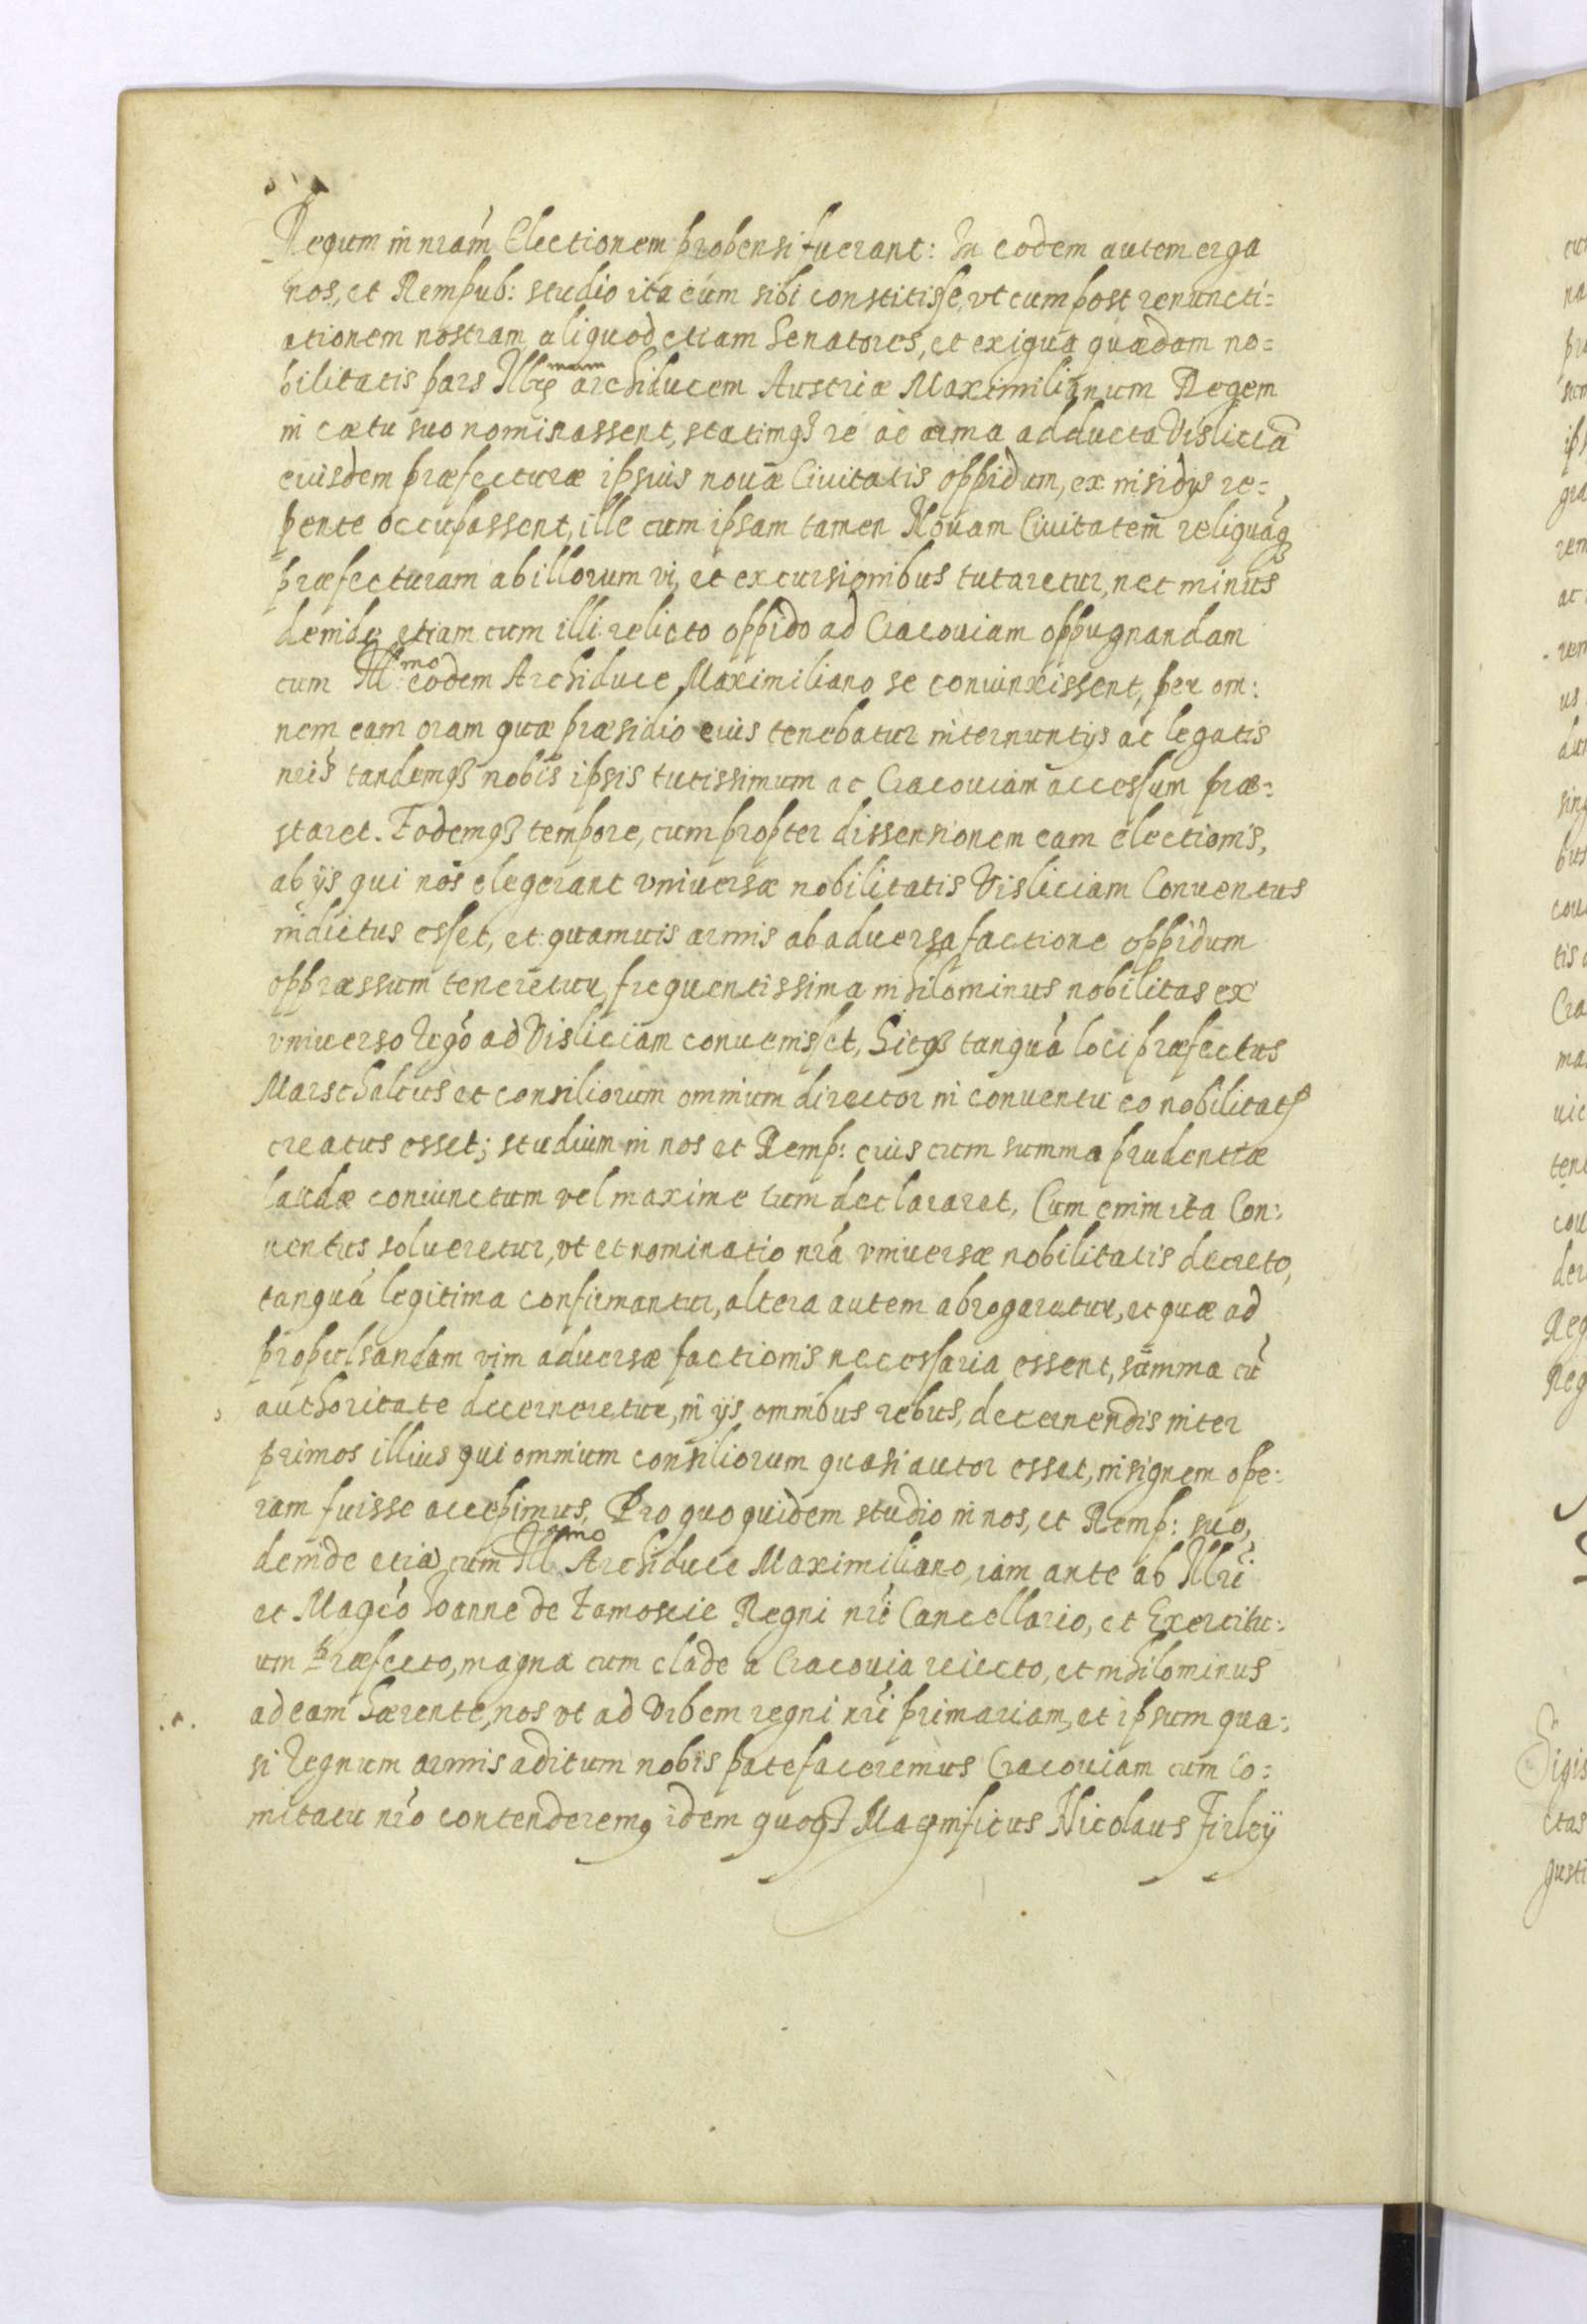 Regum in nrám Electionem propensi fuerant: In eodem autem erga
nos, et Rempub: studio ita eúm sibi constitisse, vt cum post renuncti=
ationem nostram aliquod etiam Senatores, et exigua quædam no=
bilitatis pars archiducem Austriæ Maximilianum Regem
in cætu suo nominassent, statimq3 re ac arma adducta Visliciā
eiusdem præfecturæ ipsius nouæ Ciuitatis oppidum, ex insidijs re=
pente occupassent, ille cum ipsam tamen Nouam Ciuitatem reliquáq3
præfecturam ab illorum vi, et excursionibus tutaretur, nec minus
deinde etiam cum illi relicto oppido ad Cracouiam oppugnandam
cum Ill:mo eodem Archiduce Maximiliano se coniunxissent, per om:
nem eam oram quæ præsidio eius tenebatur internuntijs ac legatis
nris tandemq3 nobis ipsis tutissimum ac Cracouiam accessum præ=
staret. Eodemq3 tempore, cum propter dissensionem eam electionis,
ab ijs qui nos elegerant vniuersæ nobilitatis Visliciam Conuentus
indictus esset, et quamuis armis ab aduersa factione oppidum
oppræssum teneretur, frequentissima nihilominus nobilitas ex
vniuerso Regó ad Visliciam conuenisset, Sicq3 tanquá loci præfectus
Marschalcus et consiliorum omnium director in conuentu eo nobilitatis
creatus esset; studium in nos et Remp: eius cum summa prudentiæ
laudæ coniunctum vel maxime tum declararet, Cum enim ita Con=
uentus solueretur, vt et nominatio nrá vniuersæ nobilitatis decreto,
tanquá legitima confirmantur, altera autem abrogaratur, et quæ ad
propulsandam vim aduersæ factionis necessaria essent, sūmma cú
authoritate decerneretur, in ijs omnibus rebus, decernendis inter
primos illius qui omnium consiliorum quasi autor esset, insignem ope:
ram fuisse accepimus, Pro quo quidem studio in nos, et Remp: suo,
deinde etiá cum Ill:mo Archiduce Maximiliano, iam ante ab Illri
et Magco Ioanne de Zamoscie Regni nri Cancellario, et Exercitu:
um Præfecto, magna cum clade a Cracouia reiecto, et nihilominus
ad eam hærente, nos vt ad Vrbem regni nri primariam, et ipsum qua:
si Regnum armis aditum nobis patefaceremus Cracouiam cum Co=
mitatu nro contenderemq idem quoq3 Magnificus Nicolaus Firleÿ